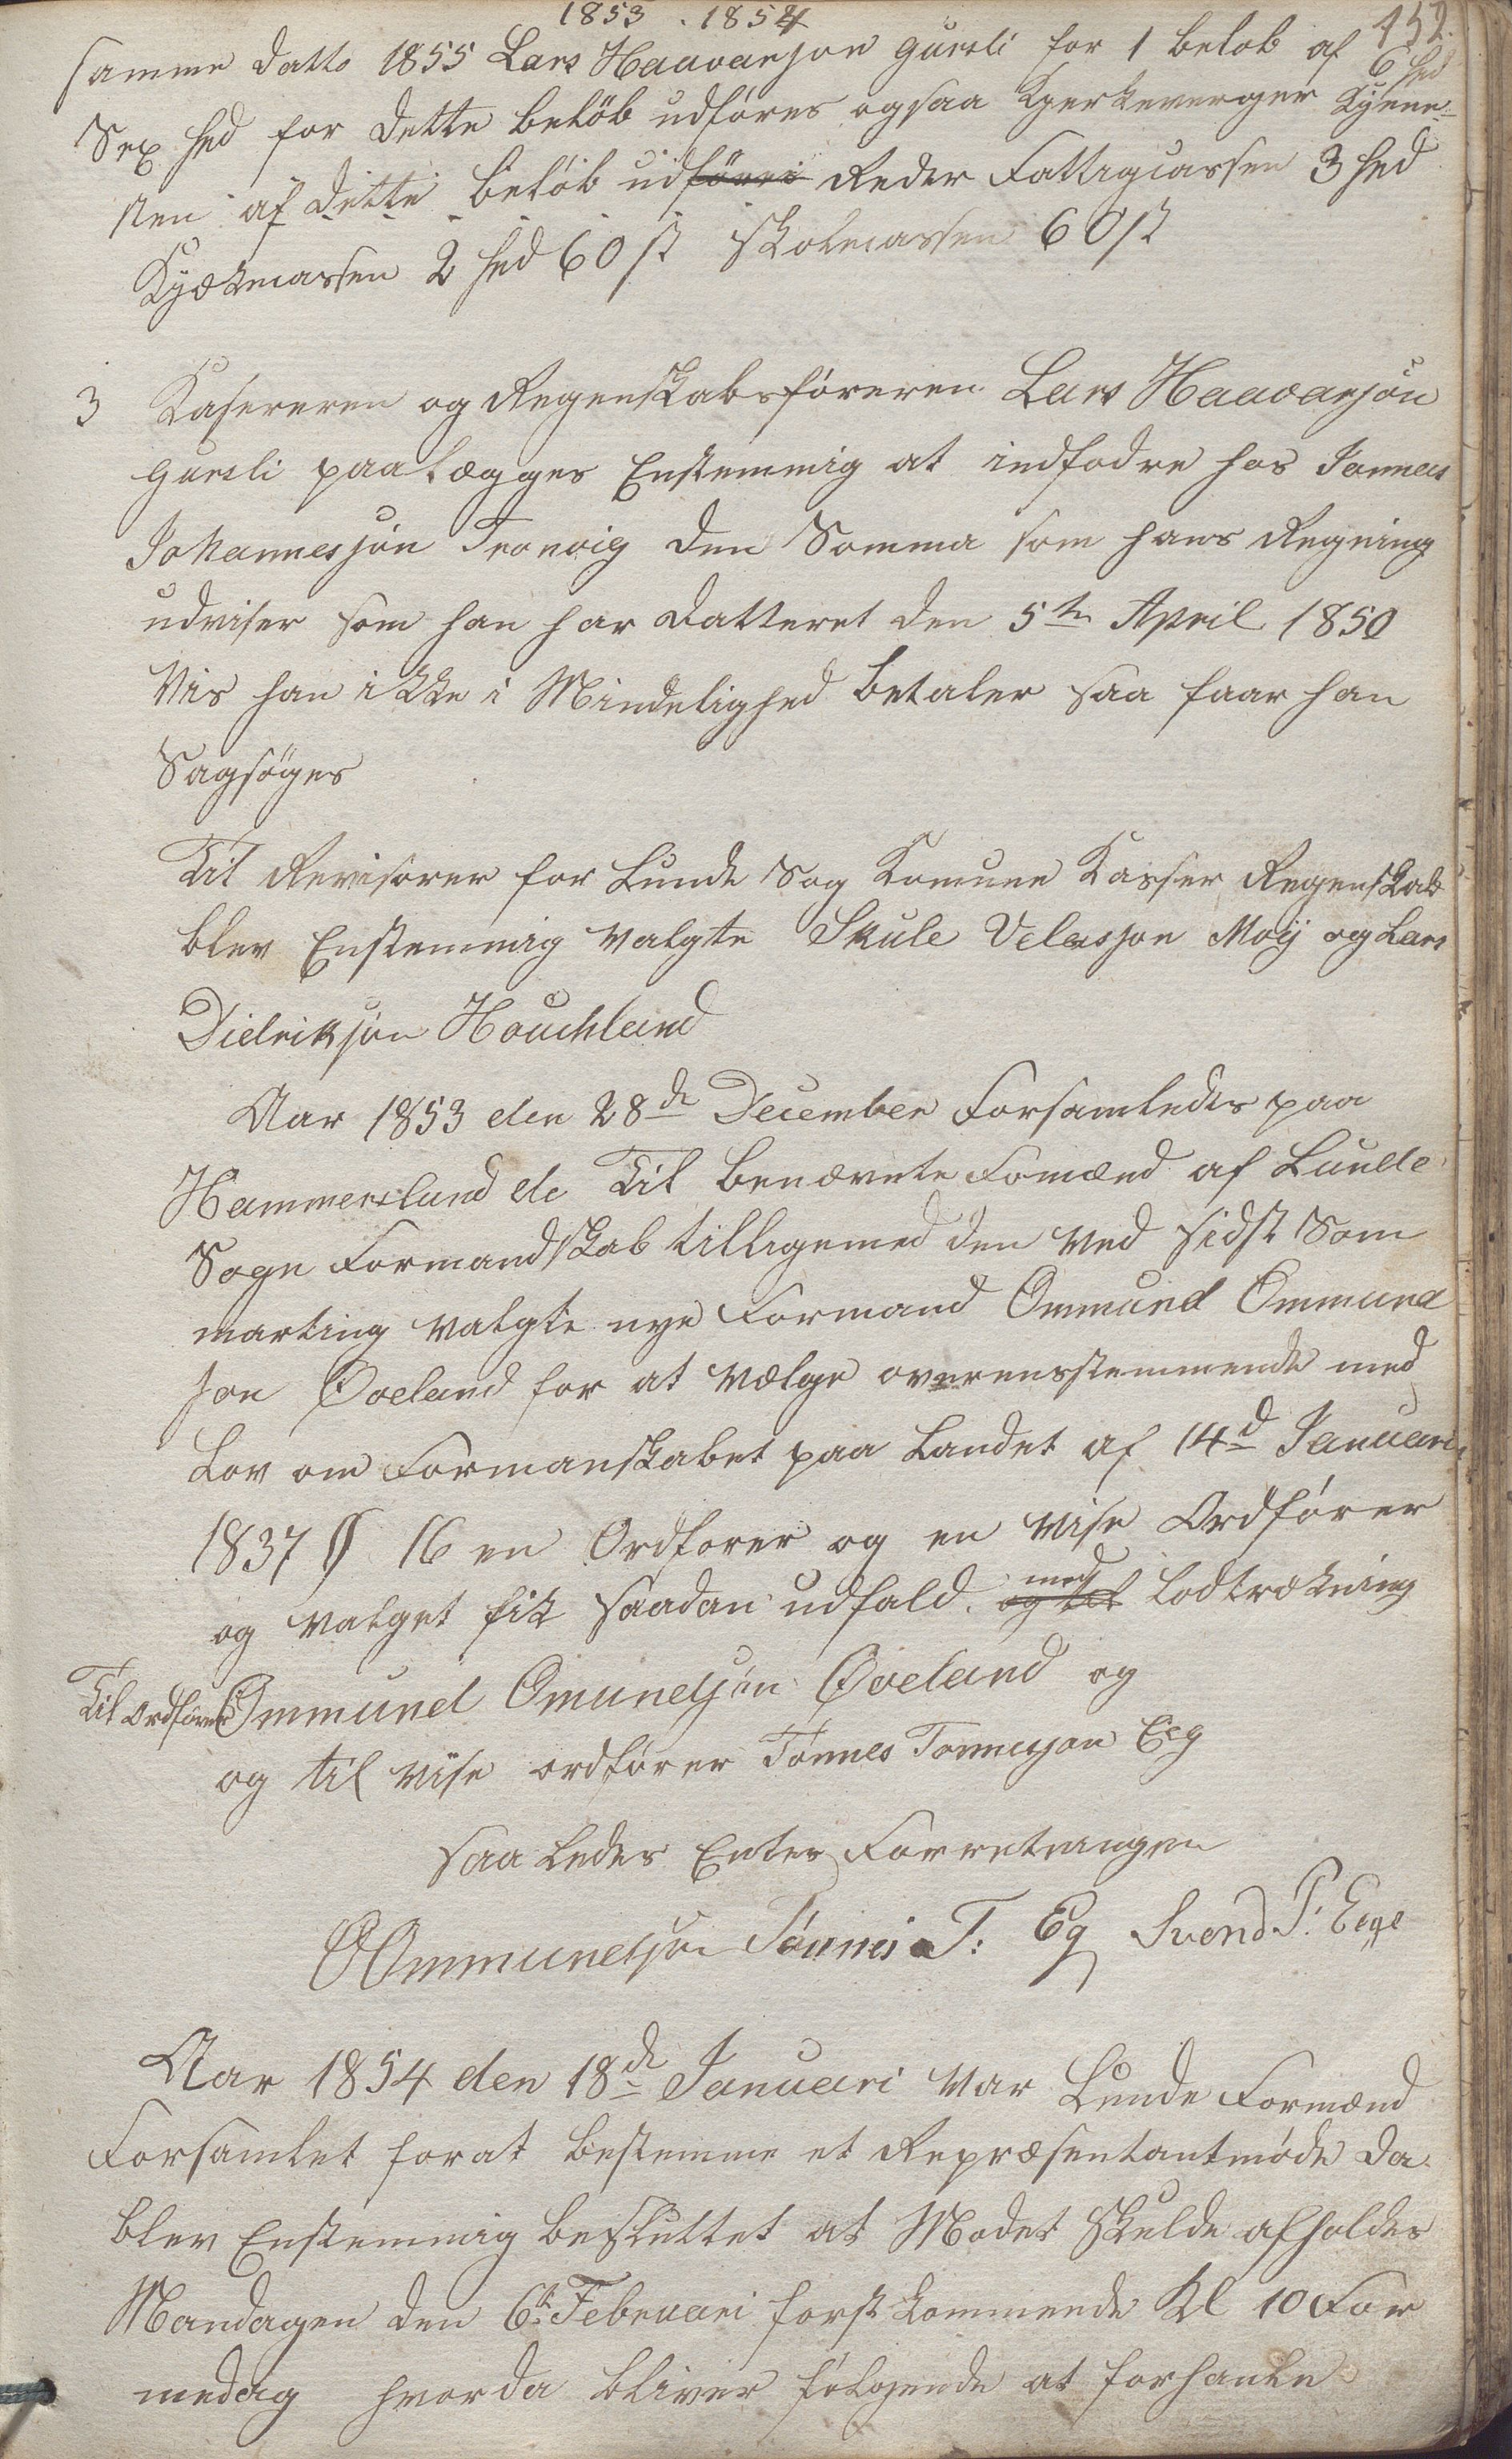 1853. 1854
152.
samme Datto 1855 Lars Haavarsson Gursli for 1 belob af 6 sed
Sex sed for Dette beløb udføres ogsaa Kjerkeverger
sten af Dette beløb udføres Reder Fattigcassen 3 sed
2 sed 60 st Skolecassen 60 st
3 Kasereren og Regenskabsføreren Lars Haavarsøn
Gursli paalægges Enstemmig at indfodre hos Tønnes
Johannesjøn Tronvig den Somma som hans Regning
udviser som han har datteret den 5te April 1850
Vis han ikke i Mindelighed betaler saa faar han
Sagsøges
Til Revisorer for Lunde Sog Komune Kasser Regenskab
blev Enstemmig valgte Skule Velesjon Moÿ og Lars
Dielrikjøn Houchland
Aar 1853 den 28de December Forsamledes paa
Hammerslund de Til benævnte Fomænd af Lunde
Sogn Formandskab tilligemed den ved sidst Som
marting valgte nye Formand Ommund Ommund
son Øveland for at vælge overensstemmende med
Lov om Formanskabet paa Landet af 14d Januari
1837 § 16 en Ordforer og en vise Ordfører
og valget fik saadan udfald med og lodtrækning
Til ordfører Ommund Omundsjøn Øveland og
og til vise ordfører Tønnes Tønnesjon Eeg
saa ledes Entes Forretningen
OOmmundsjøn Tønnes T: Eg Svend P. Eege
Aar 1854 den 18de Januari var Lunde Formænd
Forsamlet forat bestemme et Repræsentantmøde da
blev Enstemmig besluttet at Modet skulde afholdes
Mandagen den 6te Februari forstkommende Kl 10 For
medag hvorda bliver følgende at forhanle